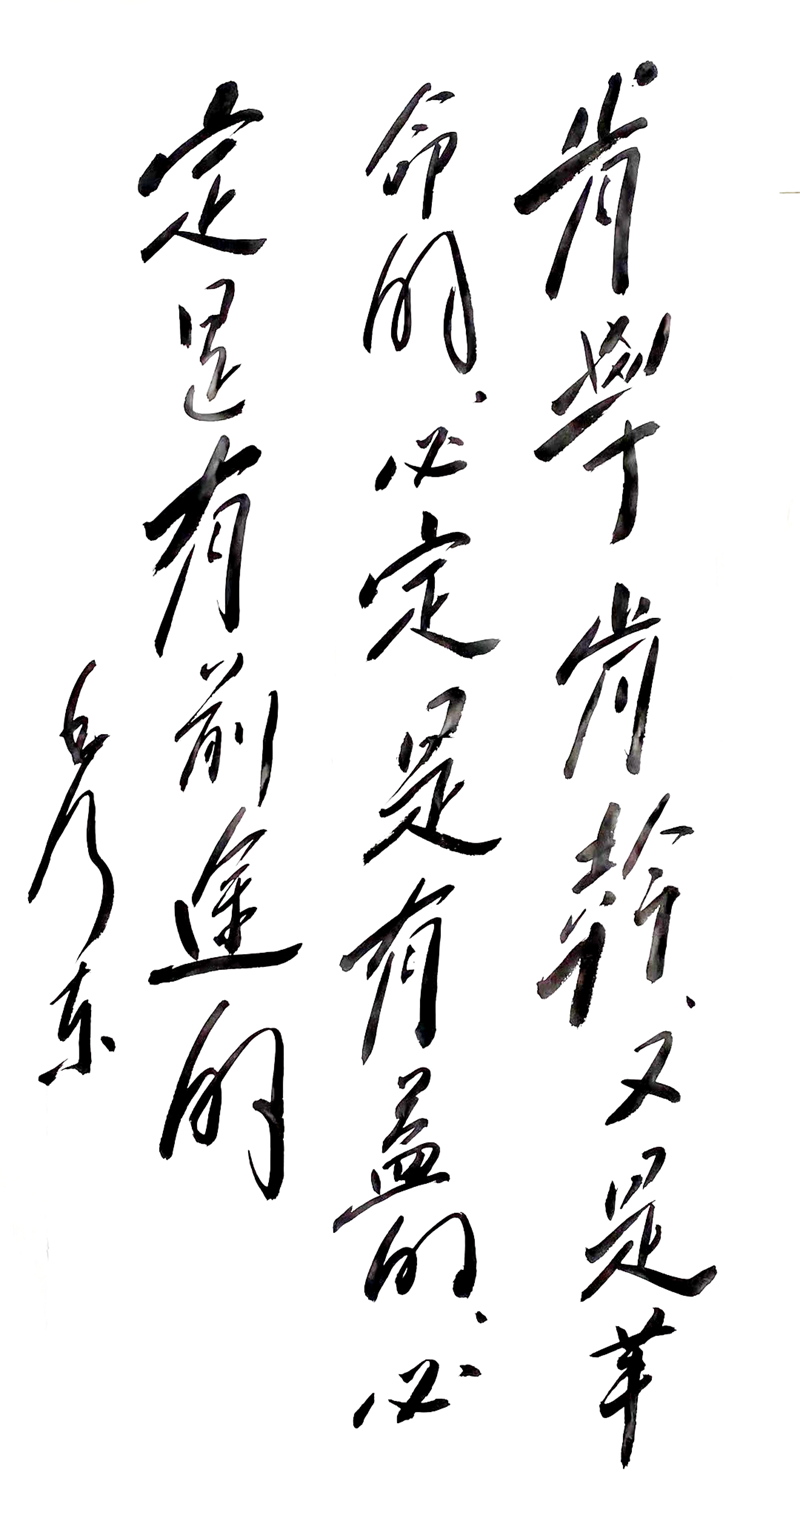 肯學肯幹、又是革
命的、必定是有益的、必
定是有前途的
毛澤东